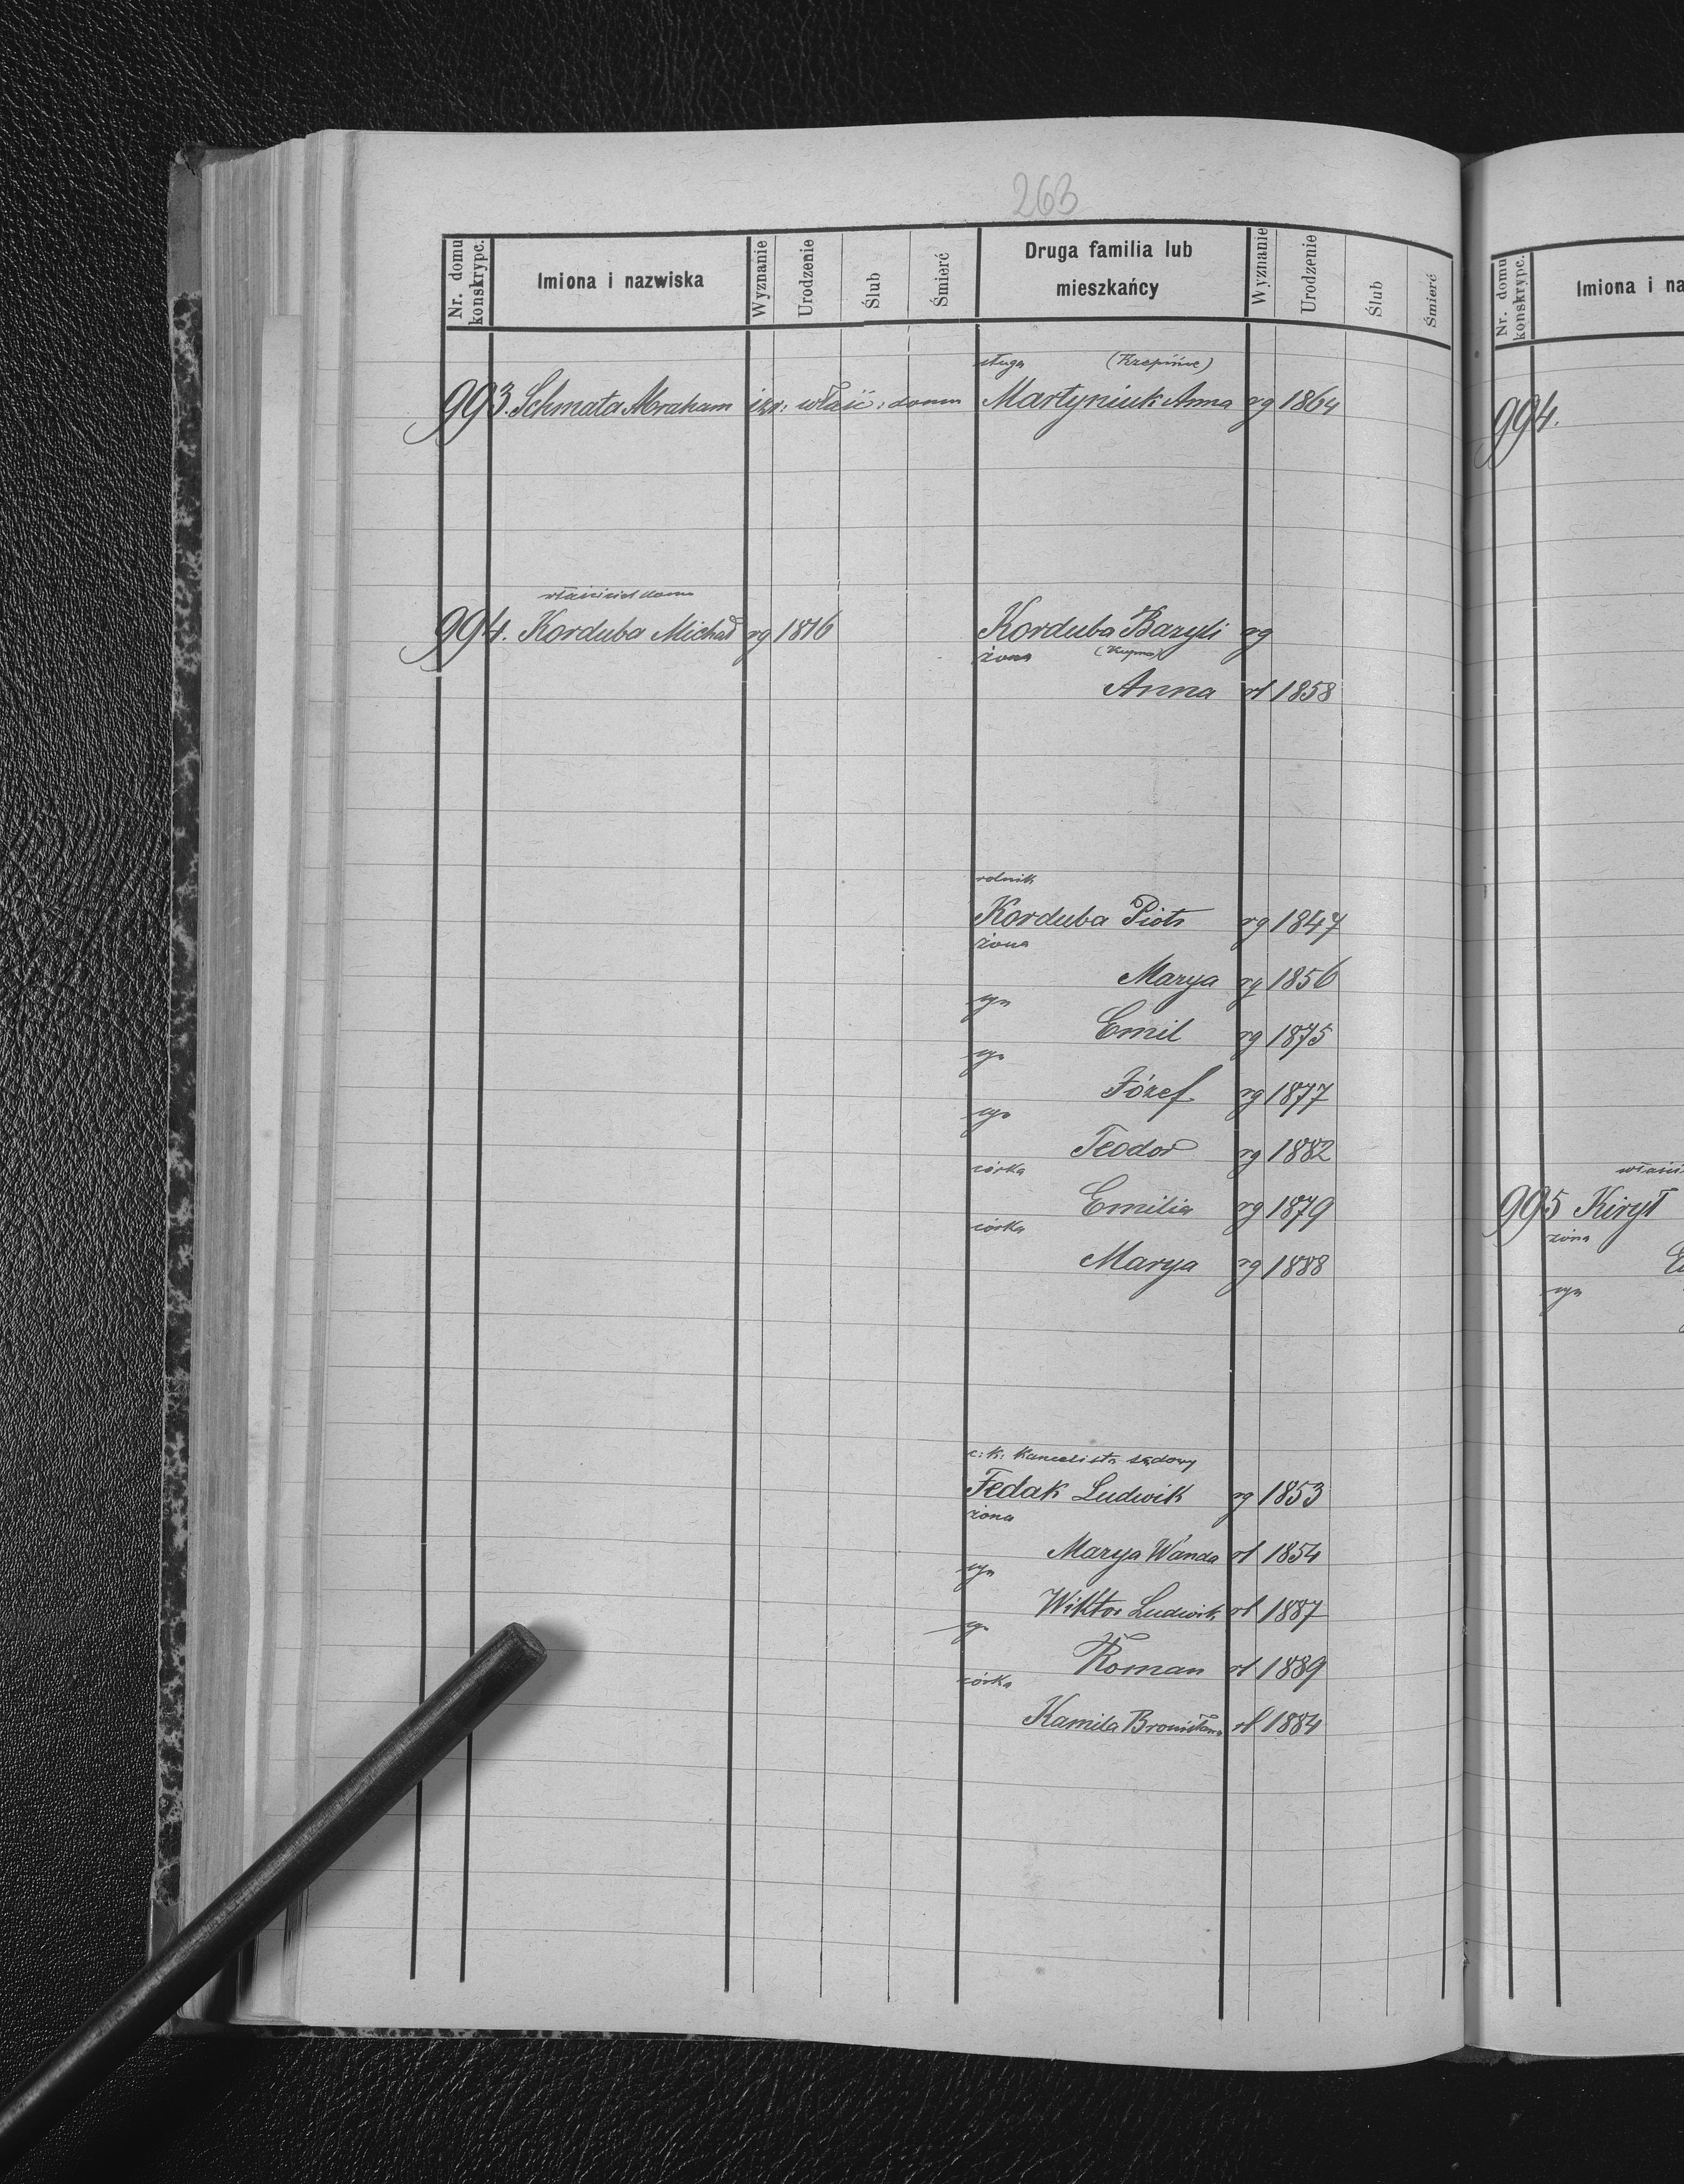 263
Nr. domu konskrypc. Imiona i nazwiska Wyznanie Urodzenie Ślub Śmierć Druga familia lub mieszkańcy Wyznanie Urodzenie Ślub Śmierć
sługa
993. Schmata Abraham izr: właść: domu Martyniuk Anna rg 1864
właściciel domu
994. Korduba Michał rg 1816 Korduba Bazyli rg
żona
Anna rł 1858
rolnik
Korduba Piotr rg 1847
żona
Marya rg 1856
syn
Emil rg 1875
syn
Józef rg 1877
syn
Teodor rg 1882
córka
Emilia rg 1879
córka
Marya rg 1888
c: k: kancelista sądowy
Fedak Ludwik rg 1853
żona
Marya Wanda rł 1854
syn
Wiktor Ludwik rł 1887
syn
Roman rł 1889
córka
Kamila Bronisława rł 1884
Nr. domu konskrypc. Imiona i na
994.
właści
995 Kirył
żona
syn